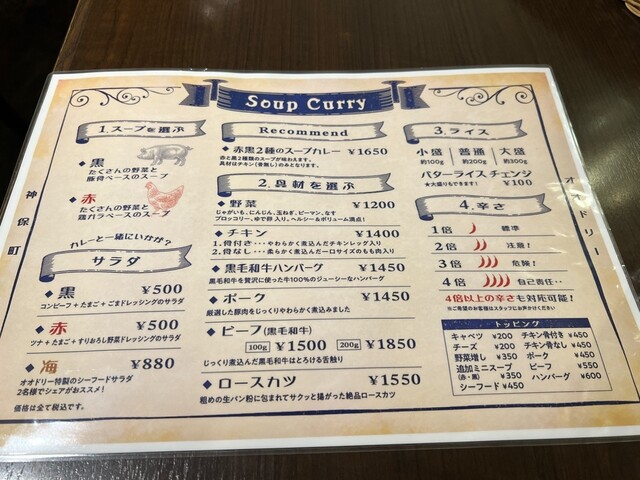 Soup Curry
1.スープを選ぶ
◆黒
たくさんの野菜と
豚骨ベースのスープ
◆赤
たくさんの野菜と
鶏ガラベースのスープ
カレーと一緒にいかが?
サラダ
◆黒 ¥500
コンビーフ+たまご+ごまドレッシングのサラダ
◆赤 ¥500
ツナ+たまご+すりおろし野菜ドレッシングのサラダ
◆海 ¥880
オオドリー特製のシーフードサラダ
2名様でシェアがおススメ!
価格は全て税込です。
神保町
Recommend
◆赤黒2種のスープカレー ¥1650
赤と黒2種類のスープが味わえます。
具材はチキン(骨無し)のみとなります。
2.具材を選ぶ
◆野菜 ¥1200
じゃがいも、にんじん、玉ねぎ、ピーマン、なす
ブロッコリー、ゆで卵入り。ヘルシー&ボリューム満点!
◆チキン ¥1400
1.骨付き・・・やわらかく煮込んだチキンレッグ入り
2.骨なし・・・柔らかく煮込んだ一口サイズのもも肉入り
◆黒毛和牛ハンバーグ ¥1450
黒毛和牛を贅沢に使った牛100%のジューシーなハンバーグ
◆ポーク ¥1450
厳選した豚肉をじっくりやわらかく煮込みました
◆ビーフ(黒毛和牛)
100g ¥1500 200g ¥1850
じっくり煮込んだ黒毛和牛はとろける舌触り
◆ロースカツ ¥1550
粗めの生パン粉に包まれてサクッと揚がった絶品ロースカツ
3.ライス
小盛 | 普通 | 大盛
約100g 約200g 約300g
バターライス チェンジ
★大盛りもできます! ¥100
4.辛さ
1倍 標準
2倍 注意!
3倍 危険!
4倍 自己責任・・
4倍以上の辛さも対応可能!
※ご希望のお客様はスタッフにお声かけください
トッピング
キャベツ ¥200 チキン骨付き ¥450
チーズ ¥200 チキン骨なし ¥450
野菜増し ¥350 ポーク ¥450
追加ミニスープ ¥350 ビーフ ¥550
(赤・黒) ハンバーグ ¥600
シーフード ¥450
オオドリー